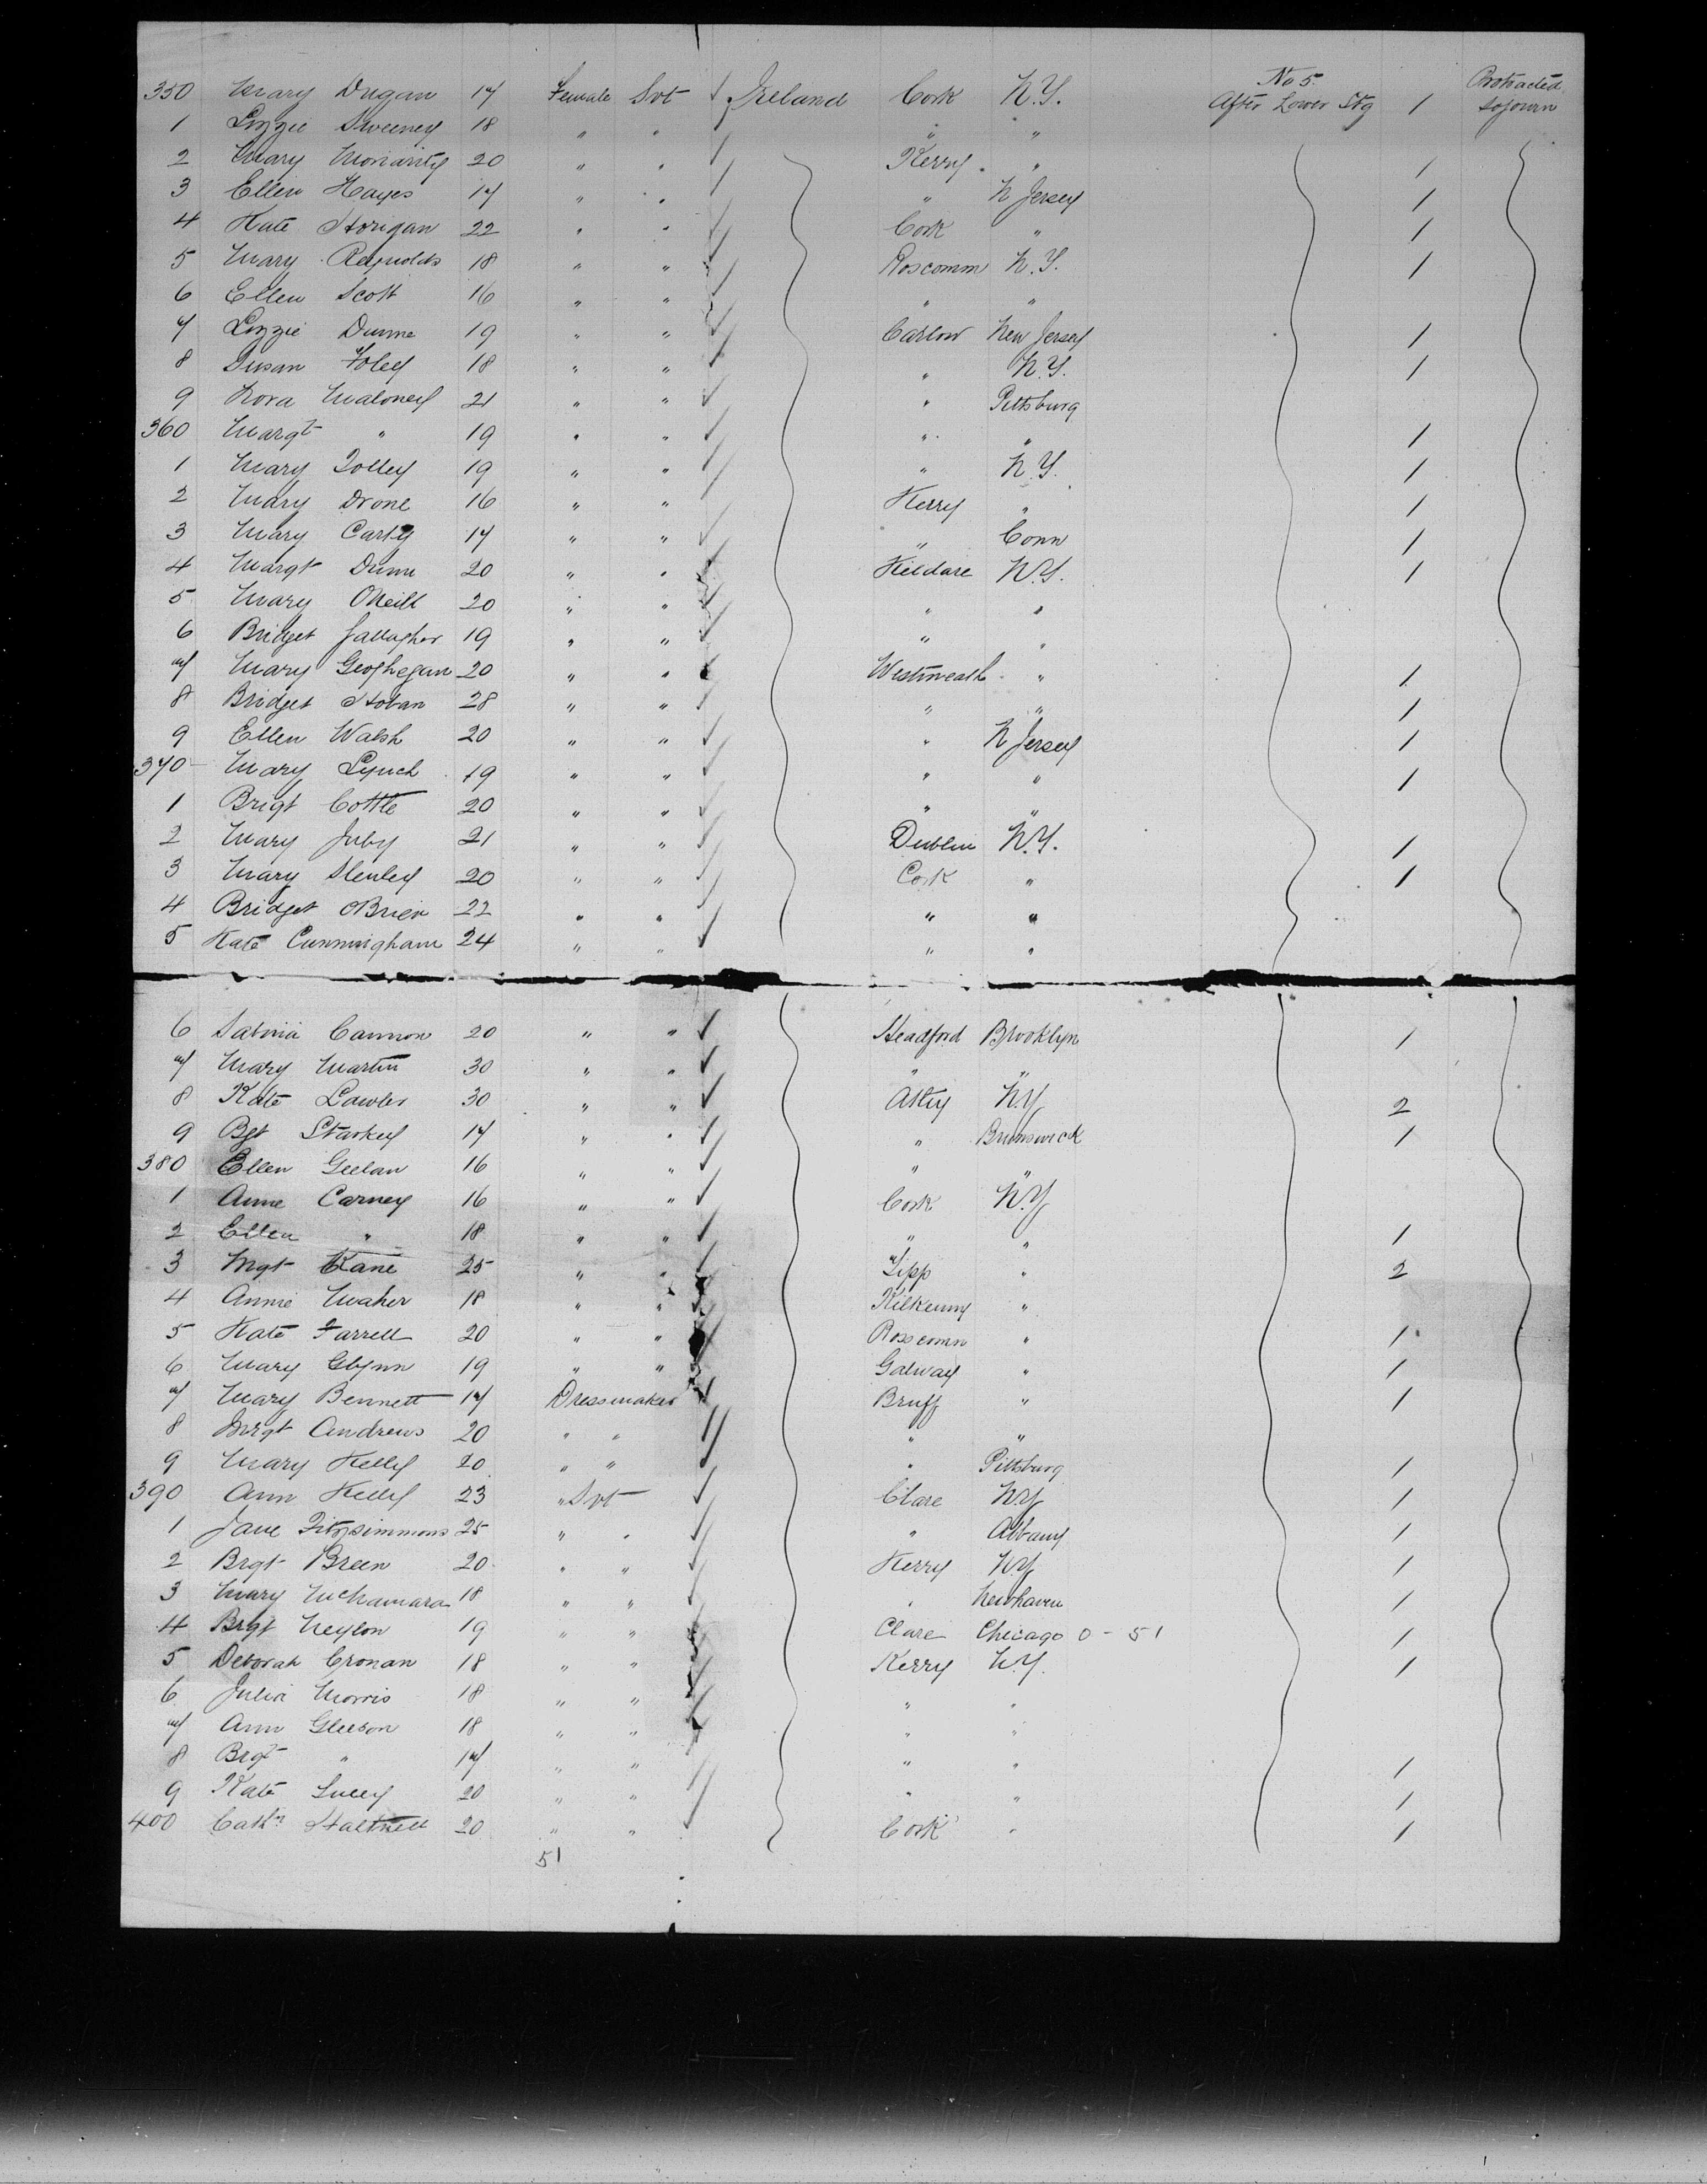 350 Mary Dugan 17 Female Svt Ireland Cork N.Y. No 5. After Lower Stg 1 Protracted sojourn
1 Lizzie Sweeney 18 " " " "
2 Mary Moriarity 20 " " Kerry " 1
3 Ellen Hayes 17 " " " N Jersey 1
4 Kate Horigan 22 " " Cork " 1
5 Mary Reynolds 18 " " Roscomm N.Y. 1
6 Ellen Scott 16 " " " "
7 Lizzie Dunne 19 " " Carlow New Jersey 1
8 Susan Foley 18 " " " N.Y. 1
9 Nora Maloney 21 " " " Pittsburg
360 Margt " 19 " " " " 1
1 Mary Jolley 19 " " " N.Y. 1
2 Mary Drone 16 " " Kerry " 1
3 Mary Carty 17 " " " Conn 1
4 Margt Dunn 20 " " Kildare N.Y. 1
5 Mary ONeill 20 " " " "
6 Bridget Gallagher 19 " " " "
7 Mary Geoghegan 20 " " Westmeath " 1
8 Bridget Hoban 28 " " " " 1
9 Ellen Walsh 20 " " " N Jersey 1
370 Mary Lynch 19 " " " " 1
1 Brigt Cottle 20 " " " "
2 Mary Juby 21 " " Dublin N.Y. 1
3 Mary Slenley 20 " " Cork " 1
4 Bridget OBrien 22 " " " "
5 Kate Cunningham 24 " " " "
6 Sabina Cannon 20 " " Headford Brooklyn 1
7 Mary Martin 30 " " " "
8 Kate Lawler 30 " " Athy N.Y 2
9 Bgt Starkey 17 " " " Brunswick 1
380 Ellen Geelan 16 " " " "
1 Anne Carney 16 " " Cork N.Y
2 Ellen " 18 " " " " 1
3 Mgt Kane 25 " " Tipp " 2
4 Annie Maher 18 " " Kilkenny "
5 Kate Farrell 20 " " Roscomn " 1
6 Mary Glynn 19 " " Galway " 1
7 Mary Bennett 17 Dressmaker Bruff " 1
8 Mrgt Andrews 20 " " " "
9 Mary Kelly 20 " " " Pittsburg 1
390 Ann Kelly 23 " Svt Clare NY 1
1 Jane Fitzsimmons 25 " " " Albany 1
2 Brgt Breen 20 " " Kerry NY 1
3 Mary McNamara 18 " " " Newhaven 1
4 Brgt Neylon 19 " " Clare Chicago 0 - 51 1
5 Deborah Cronan 18 " " Kerry N.Y. 1
6 Julia Morris 18 " " " "
7 Ann Gleeson 18 " " " "
8 Brgt " 17 " " " " 1
9 Kate Lucey 20 " " " " 1
400 Cathn Haltnett 20 " " Cork " 1
51